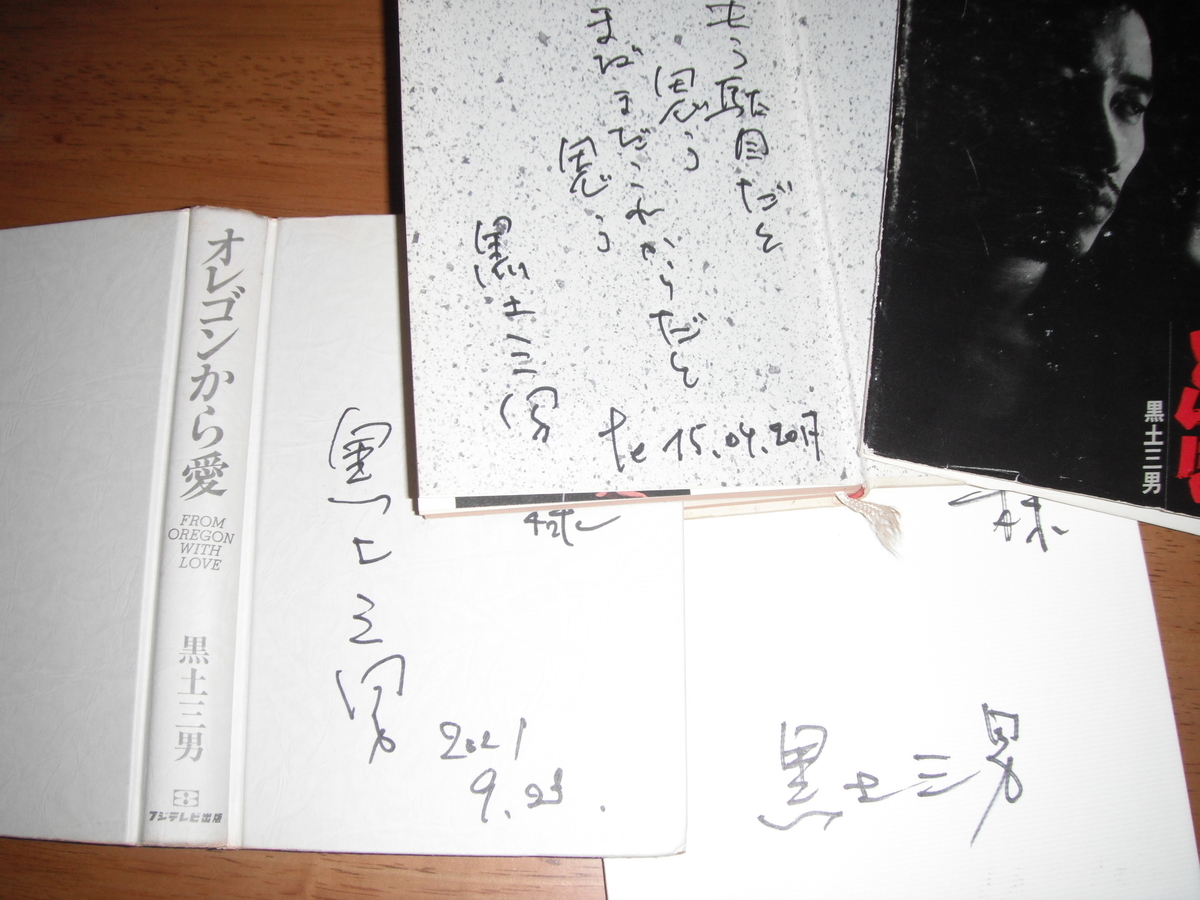 もう駄目だと
思う
まだまだこれからだと
思う
黒土三男
15.04.20月
オレゴンから愛
FROM
OREGON
WITH
LOVE
黒土三男
8
フジテレビ出版
黒土三男
2021
9.23.
様
様
黒土三男
黒土三男